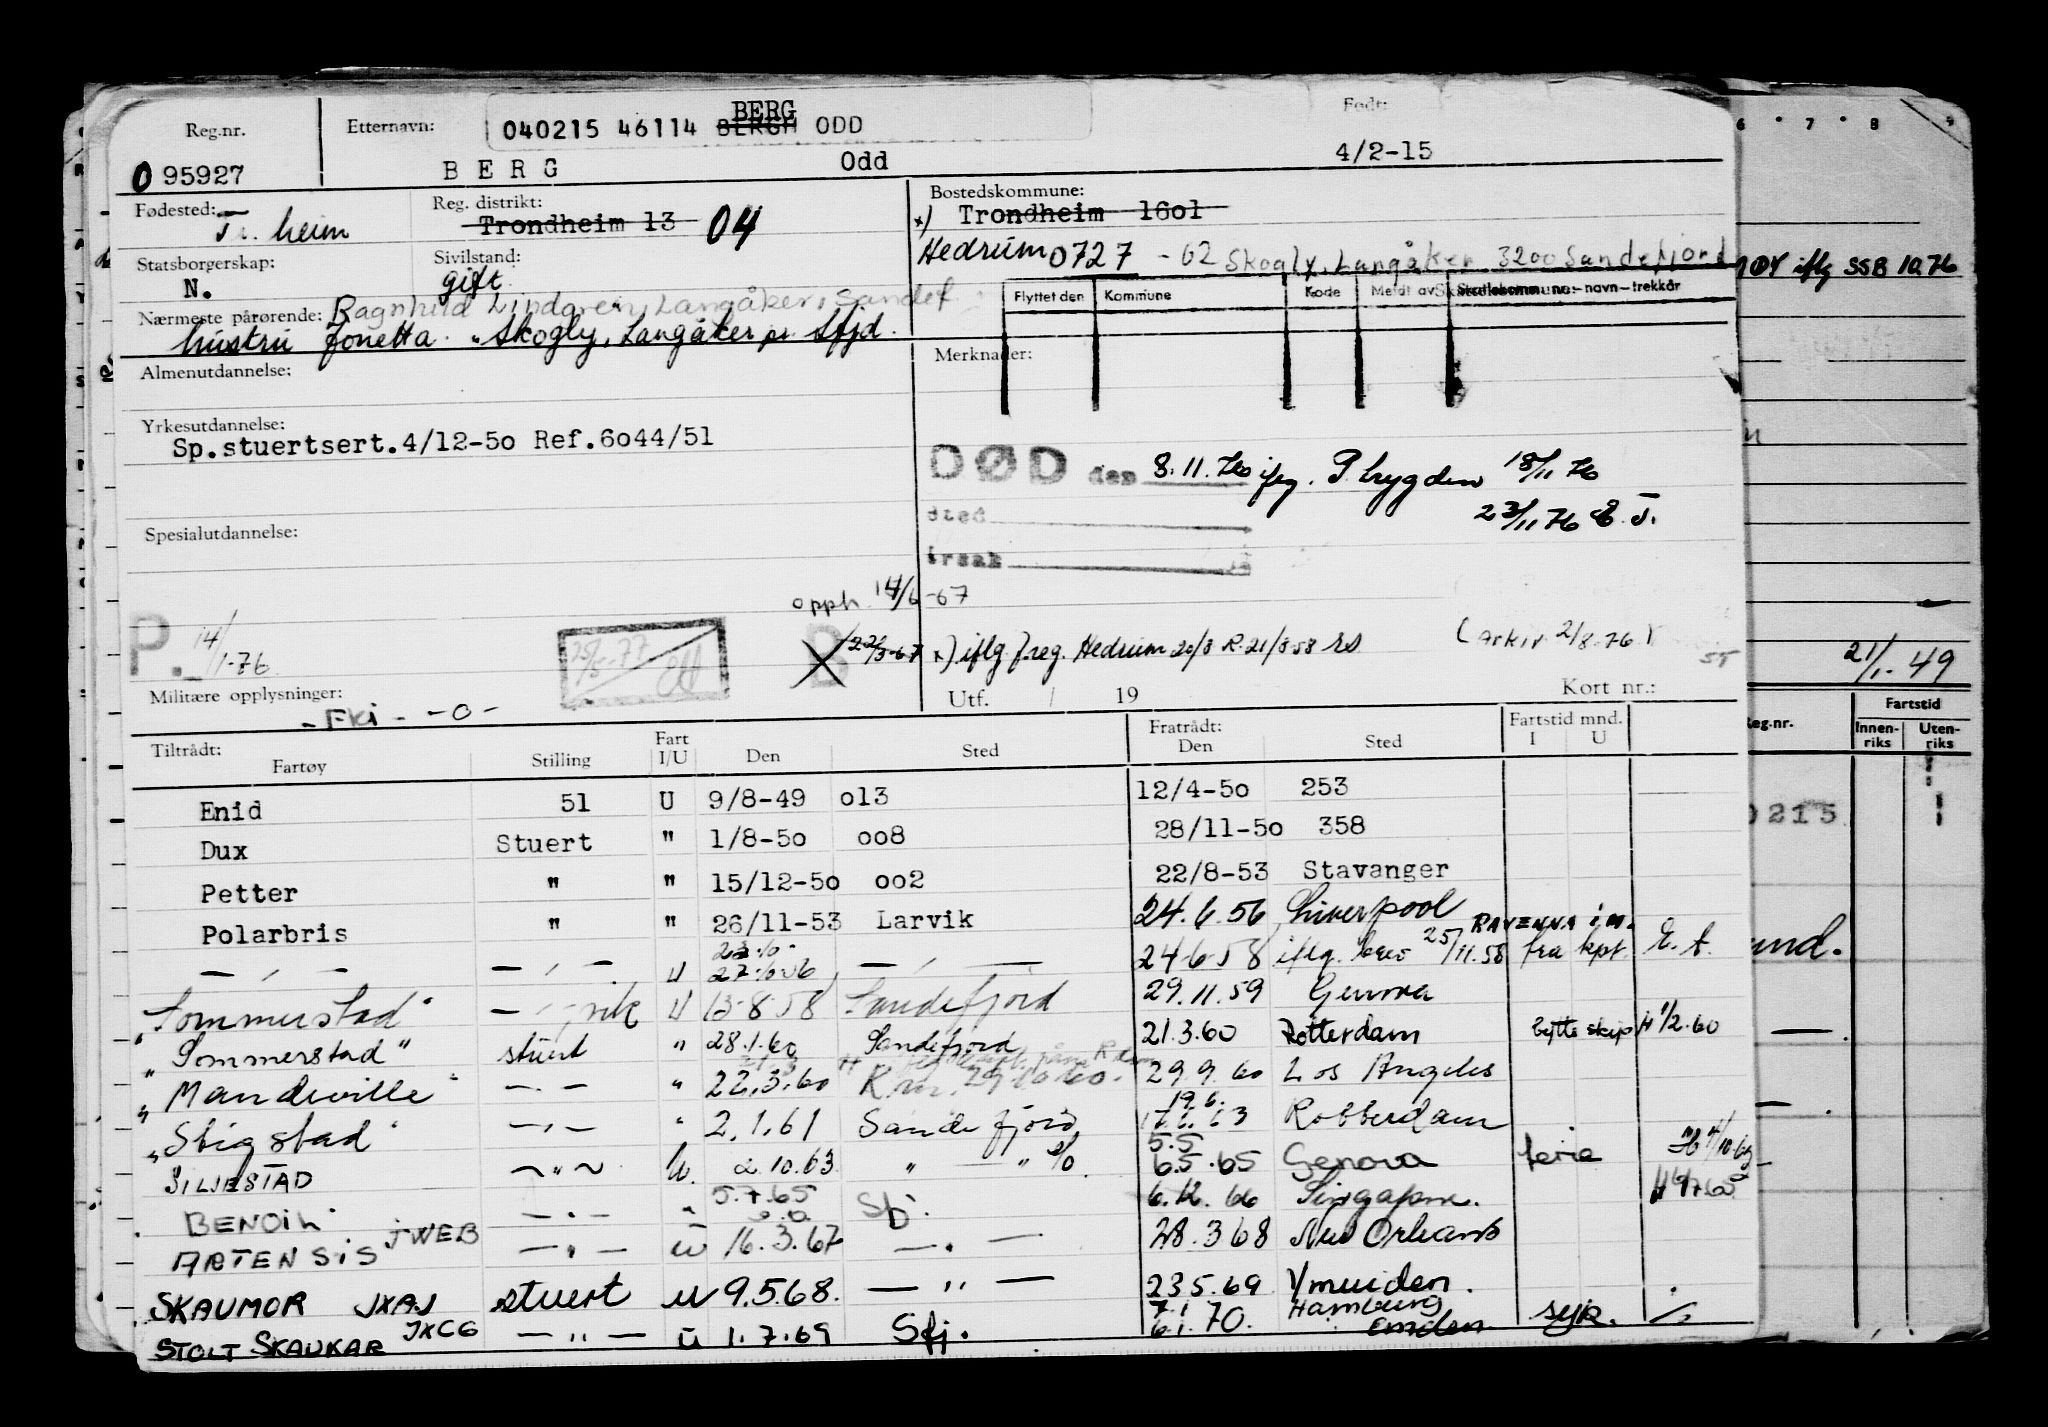 Reg.nr. Etternavn: BERG Født:
040215 46114 BERGH ODD
O 95927 BERG Odd 4/2-15
Fødested: Tr.heim Reg. distrikt: Trondheim 13 04 Bostedskommune: x) Trondheim 16o1
Hedrum 0727 - 62 Skogly, Langåker 3200 Sandefjord
iflg SSB 10.76
Statsborgerskap: N. Sivilstand: gift
Flyttet den Kommune Kode Meldt av Skattekommune:-navn-trekkår
Nærmeste pårørende: Ragnhild Lindgren, Langåker, Sandef
hustru Jonetta. Skogly, Langåker pr. Sfjd.
Almenutdannelse: Merknader:
Yrkesutdannelse:
Sp.stuertsert.4/12-5o Ref.6o44/51
DØD den 8.11.76 iflg. P. trygden 18/11 76
sted 23/11 76 E.T.
årsak
Spesialutdannelse:
opph. 14/6-67
P. 14/1-76
25/5-77
B 22/3-67 x) iflg. freg. Hedrum 20/8 R. 21/8-58 (arkiv 2/8-76)
21/1-49
Militære opplysninger: - Fki - -o- Utf. 19 Kort nr.:
Tiltrådt: Fratrådt: Fartstid mnd.
Fartøy Stilling Fart I/U Den Sted Den Sted I U
Reg.nr. Fartstid Innen-riks Uten-riks
Enid 51 U 9/8-49 o13 12/4-5o 253
0215
Dux Stuert " 1/8-5o oo8 28/11-5o 358
Petter " " 15/12-5o oo2 22/8-53 Stavanger
Polarbris " " 26/11-53 Larvik 24.6.56 Liverpool
RAVENNA i M.
— , — — , — U — , — 24-6-58 iflg. brev 25/11.58 fra kpt.
"Sommerstad" U 13-8-58 Sandefjord 29.11.59 Genova
"Sommerstad" stuert " 28.1.60 Sandefjord 21.3.60 Rotterdam bytte skip H 1/2-60
"Mandeville" — . — " 22.3.60 29.9.60 Los Angeles
"Stigstad" — , — " 2.1.61 Sandefjord 19.6. 17.6.63 Rotterdam
SILJESTAD — " — U. 2.10.63 " — " 5.5 6.5.65 Genova ferie
BENOIL — . — " 5.7.65 Sfj. 6.12.66 Singapore.
ARTENSIS JWEB — " — U 16.3.67 — . — 28.3 68 New Orleans
SKAUMOR JXAJ stuert U 9.5.68. — " — 23.5.69 Ymuiden.
STOLT SKAUKAR JXCG — " — U 1.7.69 Sfj. 7.1. 6.1.70. Hamburg Emden syk.